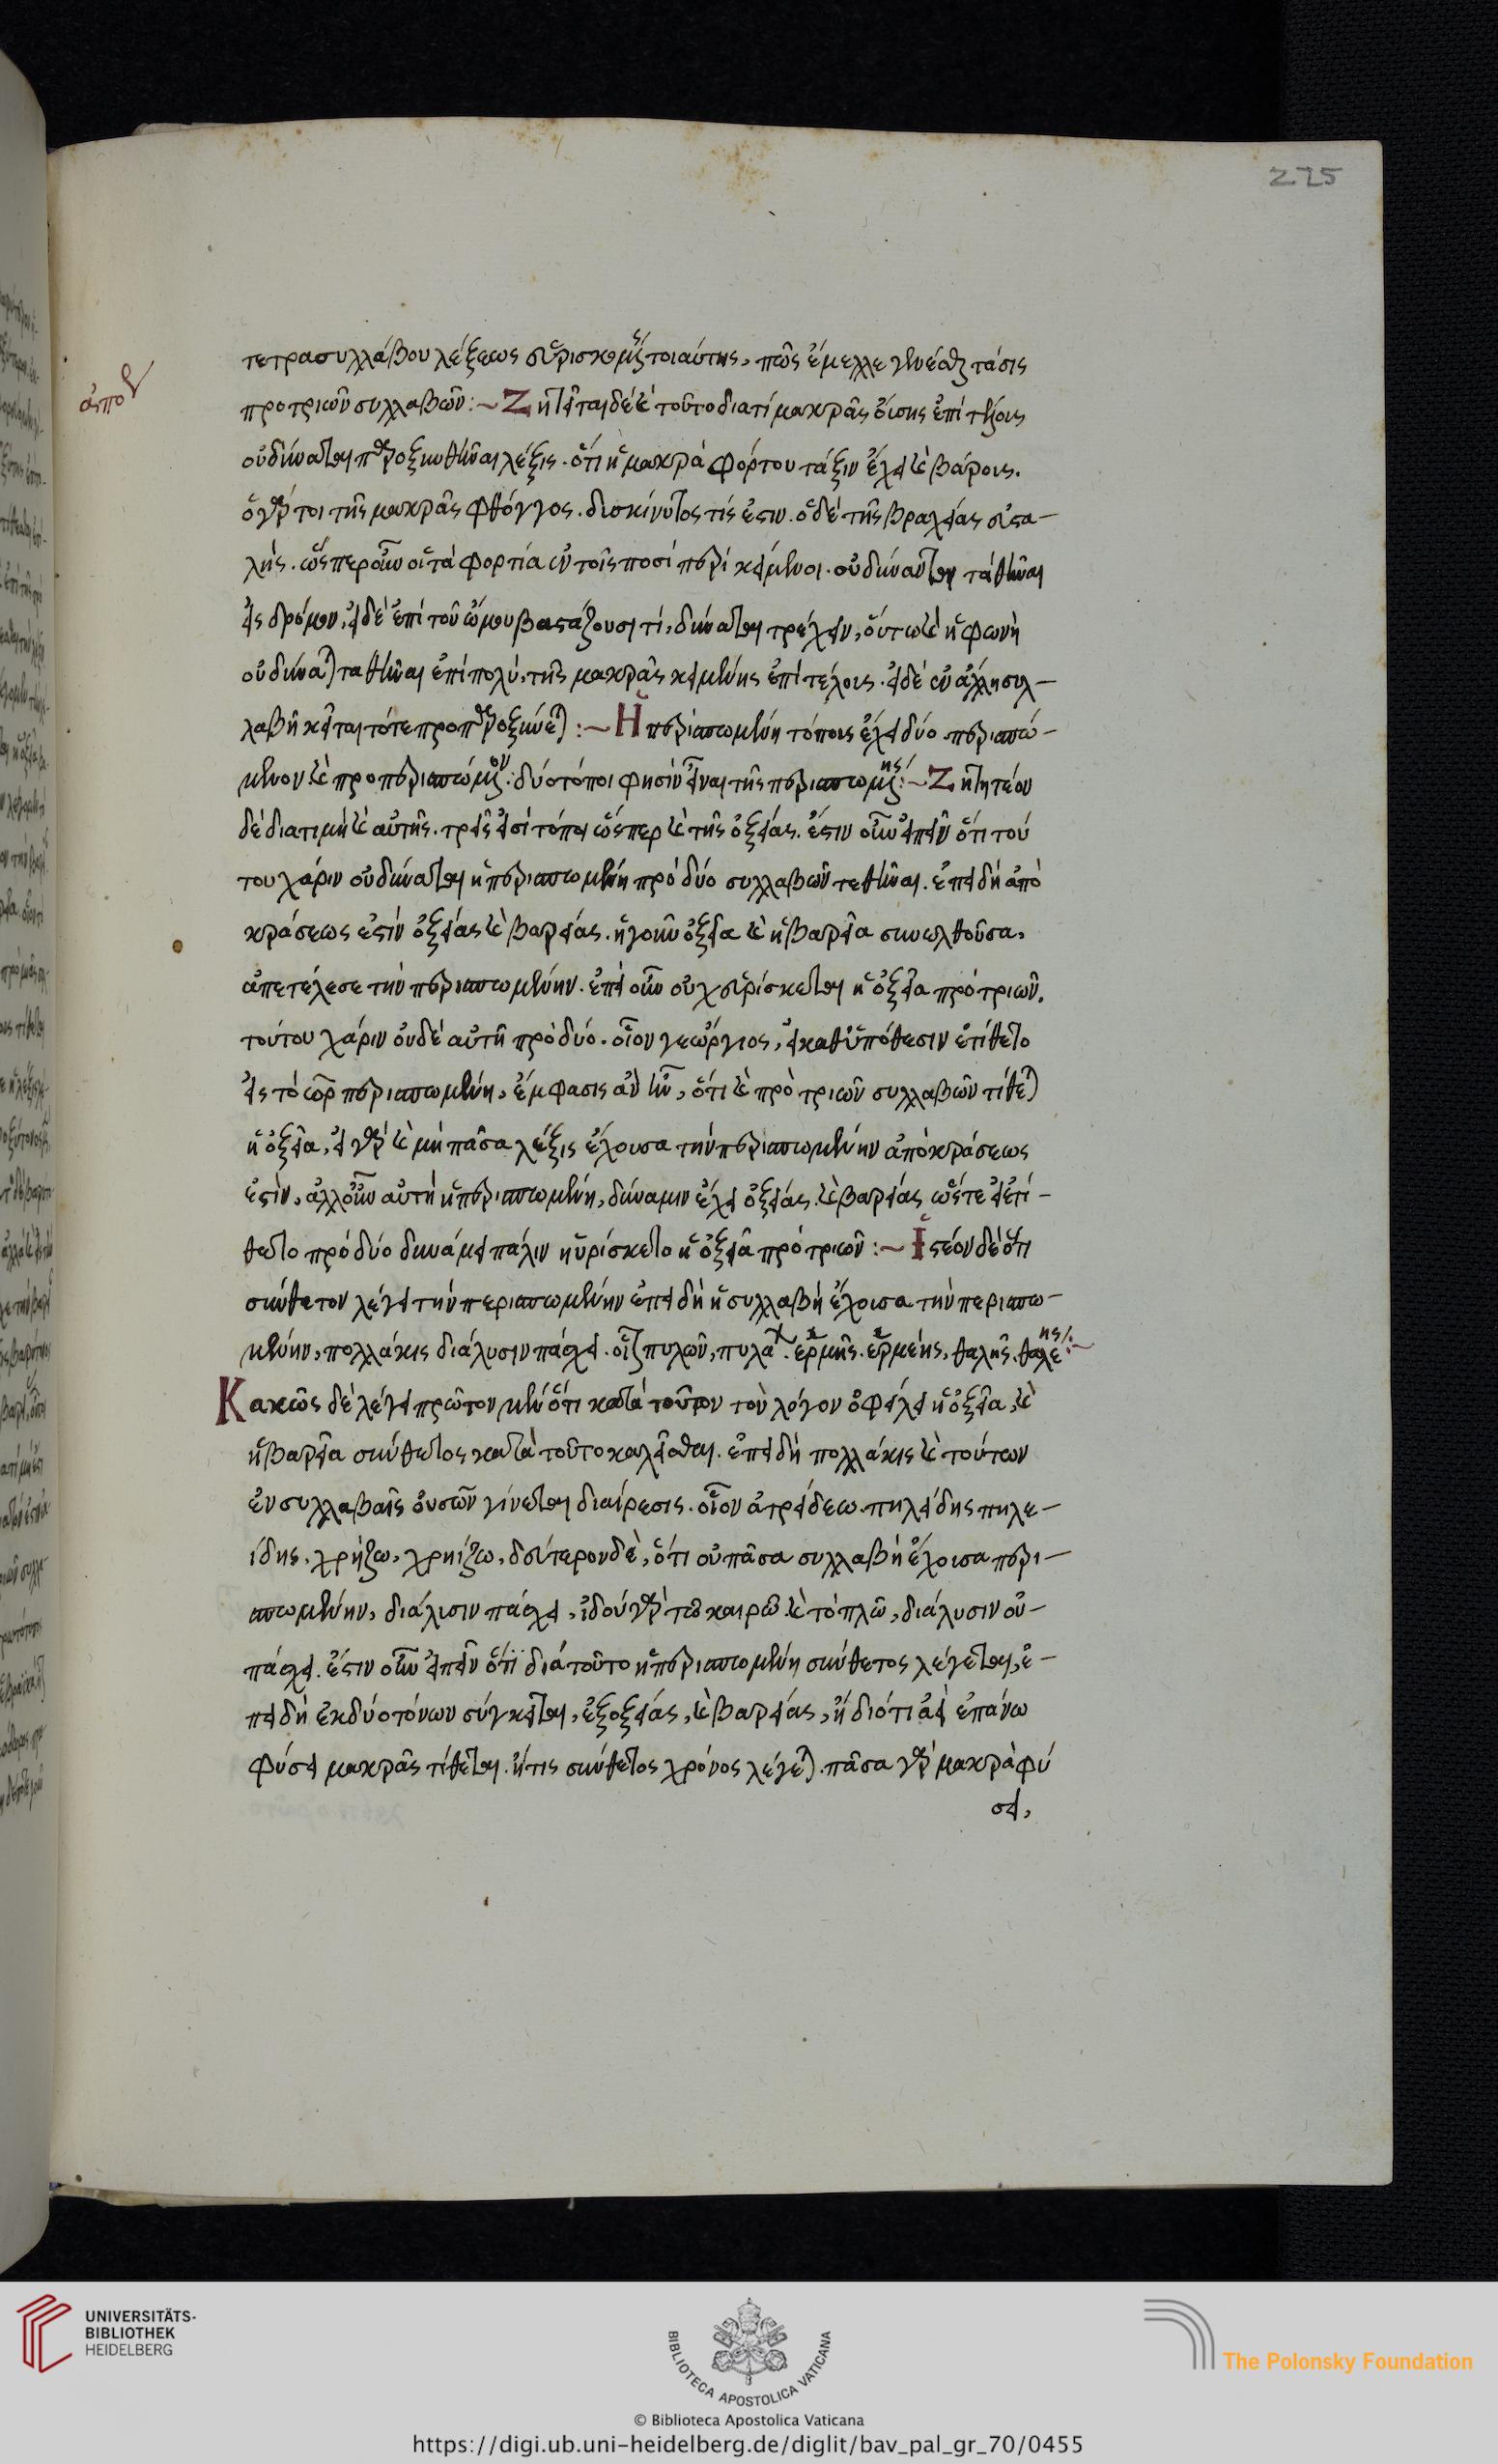 225
τετρασυλλάβου λέξεως εὑρισκομένης τοιαύτης, πῶς ἔμελλε γενέσθαι τάσις
ἀπο
προ τριῶν συλλαβῶν :~ Ζητεῖται δέ καὶ τοῦτο διατί μακρᾶς οὔσης ἐπὶ τέλους
οὐ δύναται παροξυνθῆναι λέξις. ὅτι ἡ μακρὰ φόρτου τάξιν ἔχει καὶ βάρους.
ὁ γάρ τοι τῆς μακρᾶς φθόγγος. δυσκίνητος τίς ἐστιν. ὁ δὲ τῆς βραχείας εὐστα-
λής. ὥσπερ οὖν οἱ τὰ φορτία ἐν τοῖς ποσὶ περικείμενοι. οὐ δύνανται ταθῆναι
εἰς δρόμον, εἰ δὲ ἐπὶ τοῦ ὤμου βαστάζουσί τι, δύναται τρέχειν, οὕτω καὶ ἡ φωνὴ
οὐ δύναται ταθῆναι ἐπιπολύ, τῆς μακρᾶς κειμένης ἐπὶ τέλους. εἰ δὲ ἐν ἄλλη συλ-
λαβῆ κεῖται τότε προπαροξύνεται :~ Ἡ περισπωμένη τόπους ἔχει δύο περισπώ-
μενον καὶ προπερισπώμενον. δύο τόποι φησὶν εἶναι τῆς περισπωμένης :~ Ζητητέον
δὲ διατί μὴ καὶ αὐτῆς. τρεῖς εἰσὶ τόποι ὥσπερ καὶ τῆς ὀξείας. ἔστιν οὖν εἰπεῖν ὅτι τού
του χάριν οὐ δύναται ἡ περισπωμένη πρὸ δύο συλλαβῶν τεθῆναι. ἐπειδὴ ἀπὸ
κράσεως ἐστὶν ὀξείας καὶ βαρείας. ἤγουν ὀξεῖα καὶ ἡ βαρεῖα συνελθοῦσα,
ἀπετέλεσε τὴν περισπωμένην. ἐπεὶ οὖν οὐχ εὑρίσκεται ἡ ὀξεῖα πρὸ τριῶν.
τούτου χάριν οὐδὲ αὐτὴ πρὸ δύο. οἷον γεώργιος, εἰ καθ' ὑπόθεσιν ἐτίθετο
εἰς τὸ ωρ περισπωμένη, ἔμφασις ἂν ἦν, ὅτι καὶ πρὸ τριῶν συλλαβῶν τίθεται
ἡ ὀξεῖα, εἰ γὰρ καὶ μὴ πᾶσα λέξις ἔχουσα τὴν περισπωμένην ἀπὸ κράσεως
ἐστίν, ἀλλ' οὖν αὐτὴ ἡ περισπωμένη, δύναμιν ἔχει ὀξείας. καὶ βαρείας ὥστε εἰ ἐτί-
θετο πρὸ δύο δυνάμει πάλιν ηὑρίσκετο ἡ ὀξεῖα πρὸ τριῶν :~ Ἰστέον δὲ ὅτι
σύνθετον λέγει τὴν περισπωμένην ἐπειδὴ ἡ συλλαβὴ ἔχουσα τὴν περισπω-
μένην, πολλάκις διάλυσιν πάσχει. οἷον πυλῶν, πυλα. ἑρμῆς. ἑρμέης, θαλῆς. θαλέης :~
Κακῶς δὲ λέγει πρῶτον μὲν ὅτι κατὰ τοῦτον τὸν λόγον ὀφείλει ἡ ὀξεῖα, καὶ
ἡ βαρεῖα σύνθετος κατὰ τοῦτο καλεῖσθαι. ἐπειδὴ πολλάκις καὶ τούτων
ἐν συλλαβαῖς οὐσῶν γίνεται διαίρεσις. οἷον ἀτρείδεω. πηλείδης πηλε-
ίδης, χρήζω, χρηίζω, δεύτερον δὲ, ὅτι οὐ πᾶσα συλλαβὴ ἔχουσα περι-
σπωμένην, διάλυσιν πάσχει, ἰδοὺ γὰρ τῶ καιρῶ. καὶ τὸ πλῶ, διάλυσιν οὐ-
πάσχει. ἔστιν οὖν εἰπεῖν ὅτι διὰ τοῦτο ἡ περισπωμένη σύνθετος λέγεται, ἐ-
πειδὴ ἐκ δύο τόνων σύγκειται, ἐξ ὀξείας, καὶ βαρείας, ἢ διότι ἀεὶ ἐπάνω
φύσει μακρᾶς τίθεται. ἥτις σύνθετος χρόνος λέγεται. πᾶσα γὰρ μακρὰ φύ
σει,
UNIVERSITÄTS-
BIBLIOTHEK
HEIDELBERG
BIBLIOTECA APOSTOLICA VATICANA
The Polonsky Foundation
© Biblioteca Apostolica Vaticana
https://digi.ub.uni-heidelberg.de/diglit/bav_pal_gr_70/0455